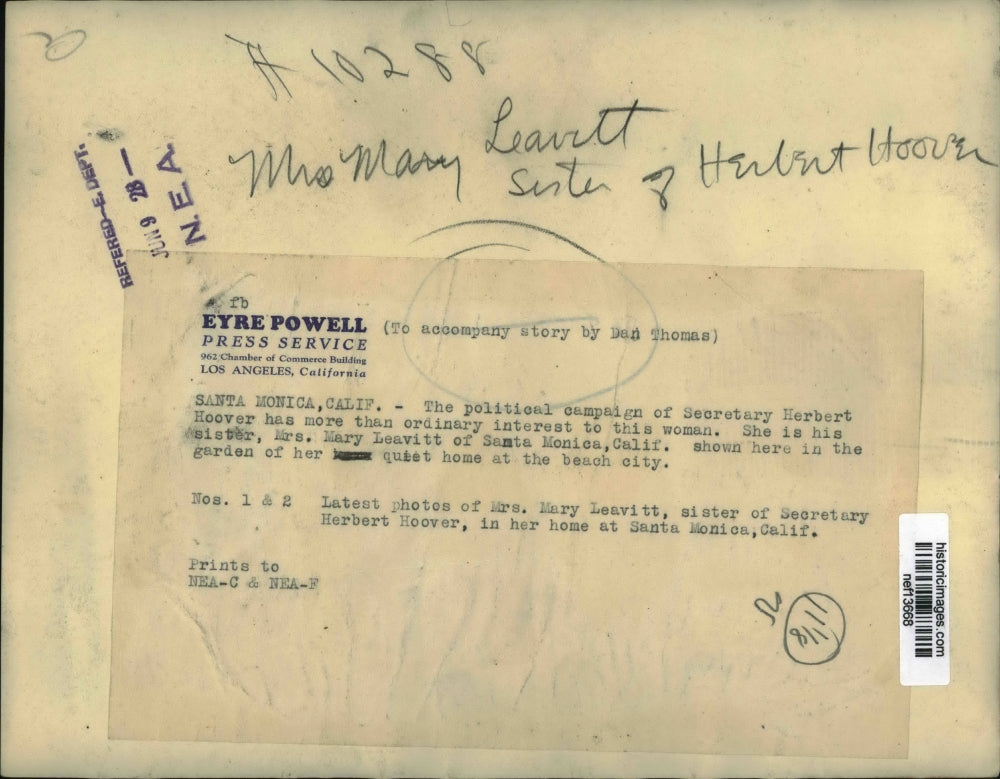 # 10288
Mrs Mary Leavitt
Sister of Herbert Hoover
REFERED-E. DEPT.
JUN 9 28 —
N.E.A.
fb
EYRE POWELL
PRESS SERVICE
962 Chamber of Commerce Building
LOS ANGELES, California
(To accompany story by Dan Thomas)
SANTA MONICA,CALIF. - The political campaign of Secretary Herbert
Hoover has more than ordinary interest to this woman. She is his
sister, Mrs. Mary Leavitt of Santa Monica,Calif. shown here in the
garden of her quiet home at the beach city.
Nos. 1 & 2 Latest photos of Mrs. Mary Leavitt, sister of Secretary
Herbert Hoover, in her home at Santa Monica,Calif.
Prints to
NEA-C & NEA-F
historicimages.com
nef13668